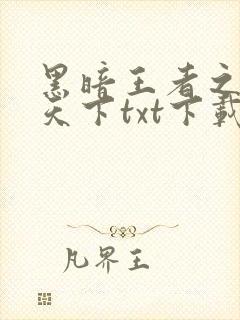 黑暗王者之
天下txt下載
凡界王